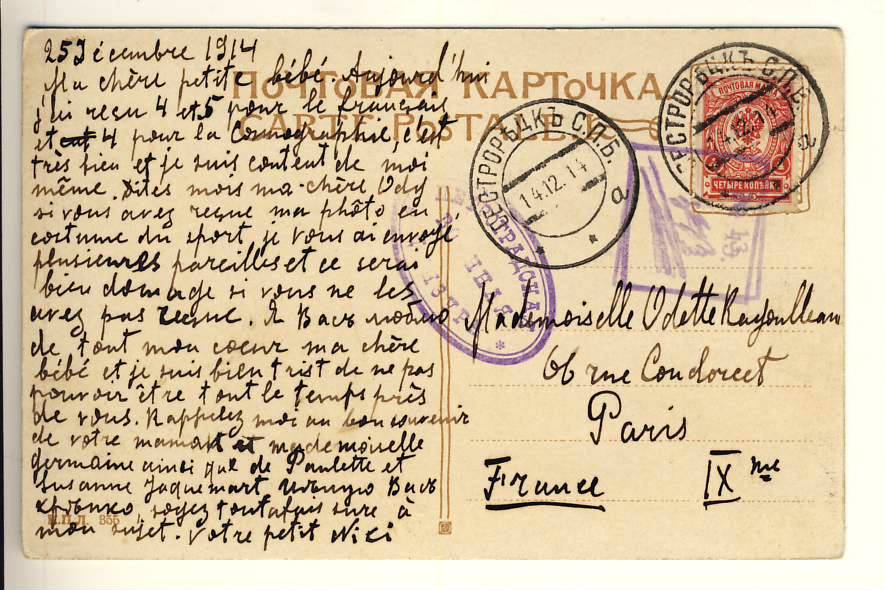 25 Décembre 1914
Ma chère petite bébé. Aujourd'hui
j'ai reçu 4 et 5 pour le français
et 4 pour la Cosmographie, c'est
très bien et je suis content de moi
même. Dites mois ma chère Ody
si vous avez reçue ma photo en
costume du sport, je vous ai envoyé
plusieures pareilles et ce serai
bien domage si vous ne les
avez pas reçue. Я Васъ люблю
de tout mon coeur ma chère
bébé et je suis bien trist de ne pas
pouvoir être tout le temps près
de vous. Rappelez moi au bon souvenir
de votre maman et mademoiselle
germaine ainsi que de Paulette et
Susanne Jaquemart цѣлую Васъ
крѣпко, soyez toutafais sure à
mon sujet. Votre petit Niki
ПОЧТОВАЯ КАРТОЧКА
CARTE POSTALE
СЕСТРОРѢЦКЪ С.П.Б.
14.12.14
а
СЕСТРОРѢЦКЪ С.П.Б.
14.12.14
а
ПОЧТОВАЯ МАРКА
ЧЕТЫРЕ КОПѢЙКИ
Mademoiselle Odette
rue Condorcet
Paris
France
IX me
355